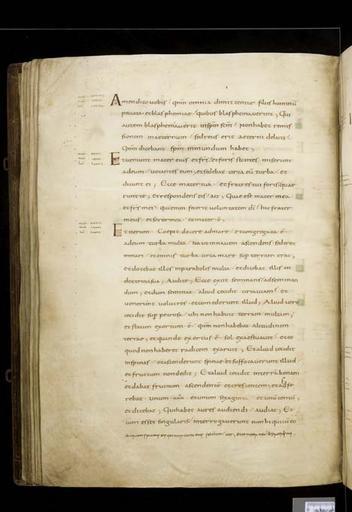 Amen dico uobis qm omnia dimittentur filiis hominũ
peccata et blasphemiae quibus blasphemauerint; Qui
autem blasphemauerit in spm scm non habet remis
sionem in aeternum sed reus erit aeterni delicti;
Qm dicebant spm inmundum habet;
Et ueniunt mater eius et frs et foris stantes miserunt
ad eum uocantes eum et sedebat circa eũ turba et
dicunt ei; Ecce mater tua et fratres tui foris quae
runt te; et respondens eis ait; Quae est mater mea
et frs mei
Et iterum Coepit docere ad mare et congregata ẽ
ad eum turba multa ita ut in nauem ascendens sederet
in mari et omnis turba circa mare sup terram erat;
et docebat illos in parabolis multa et dicebat illis in
doctrina sua; Audite; Ecce exiit seminans ad seminan
dum; et dum seminat aliud cecidit circa uiam et
uenerunt uolucres et comederunt illud; Aliud uero
cecidit sup petrosa ubi non habuit terram multam;
et statim exortum ẽ qm non habebat altitudinem
terrae; et quando exortus ẽ sol exaestuauit et eo
quod non haberet radicem exaruit; Et aliud cecidit
in spinas et ascenderunt spinae et suffocauerunt illud
et fructum non dedit; Et aliud cecidit in terrã bonam
et dabat fructum ascendentẽ et crescentem; et adfe
rebat unum et unum sexaginta et unũ centũ;
et dicebat; Qui habet aures audiendi audiat; Et
cum esset singularis interrogauerunt eum hi qui cũ eo